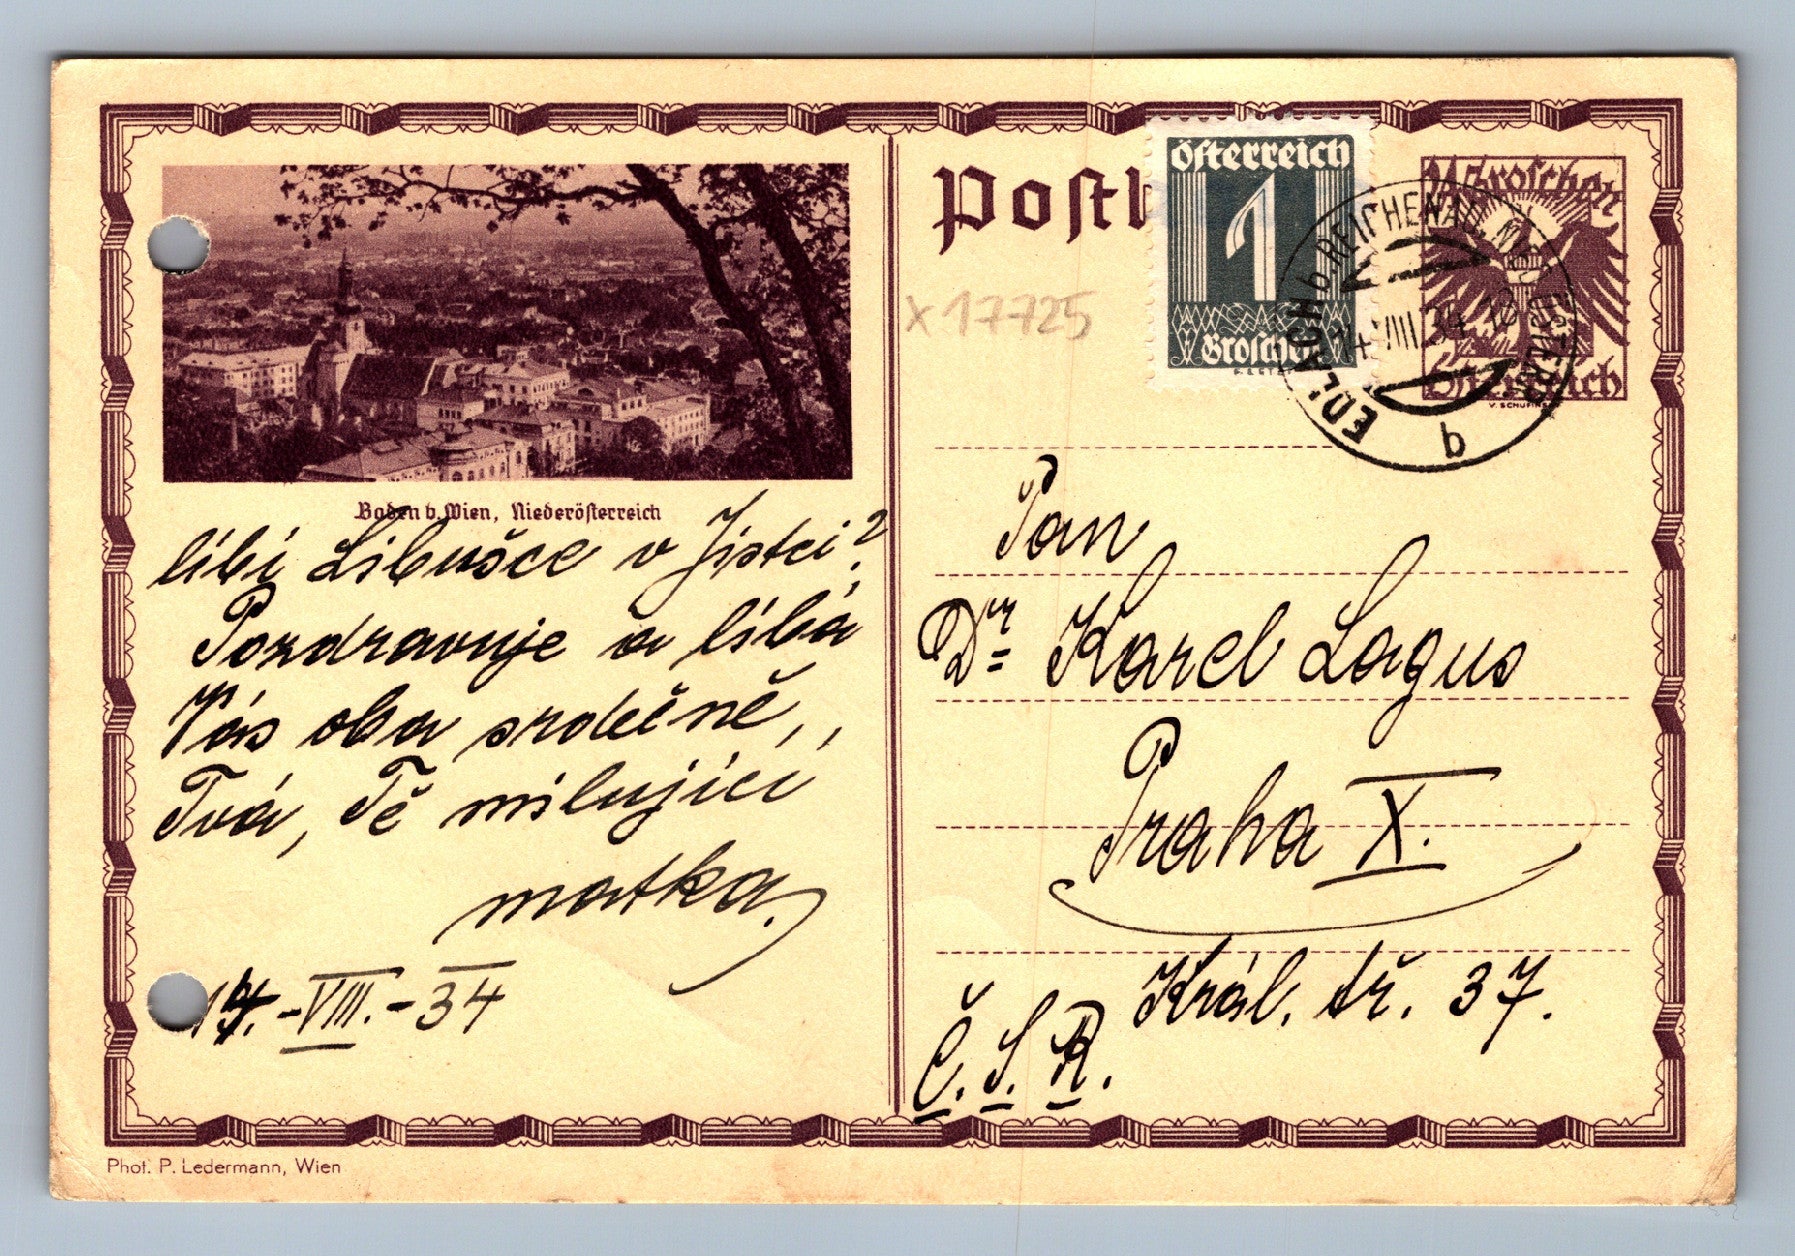 Baden b. Wien, Niederösterreich
líbí Libušce v Jistci?
Pozdravuje a líbá
Vás oba srdečně,
Tvá, Tě milující
matka.
14.-VIII.-34
Phot. P. Ledermann, Wien
Postk
Österreich
1
Groschen
X 17725
Groschen
Österreich
EDLACH b. REICHENAU, N
14.VIII.34
b
Pan
Dr. Karel Lagus
Praha X.
Král. tř. 37.
Č.S.R.